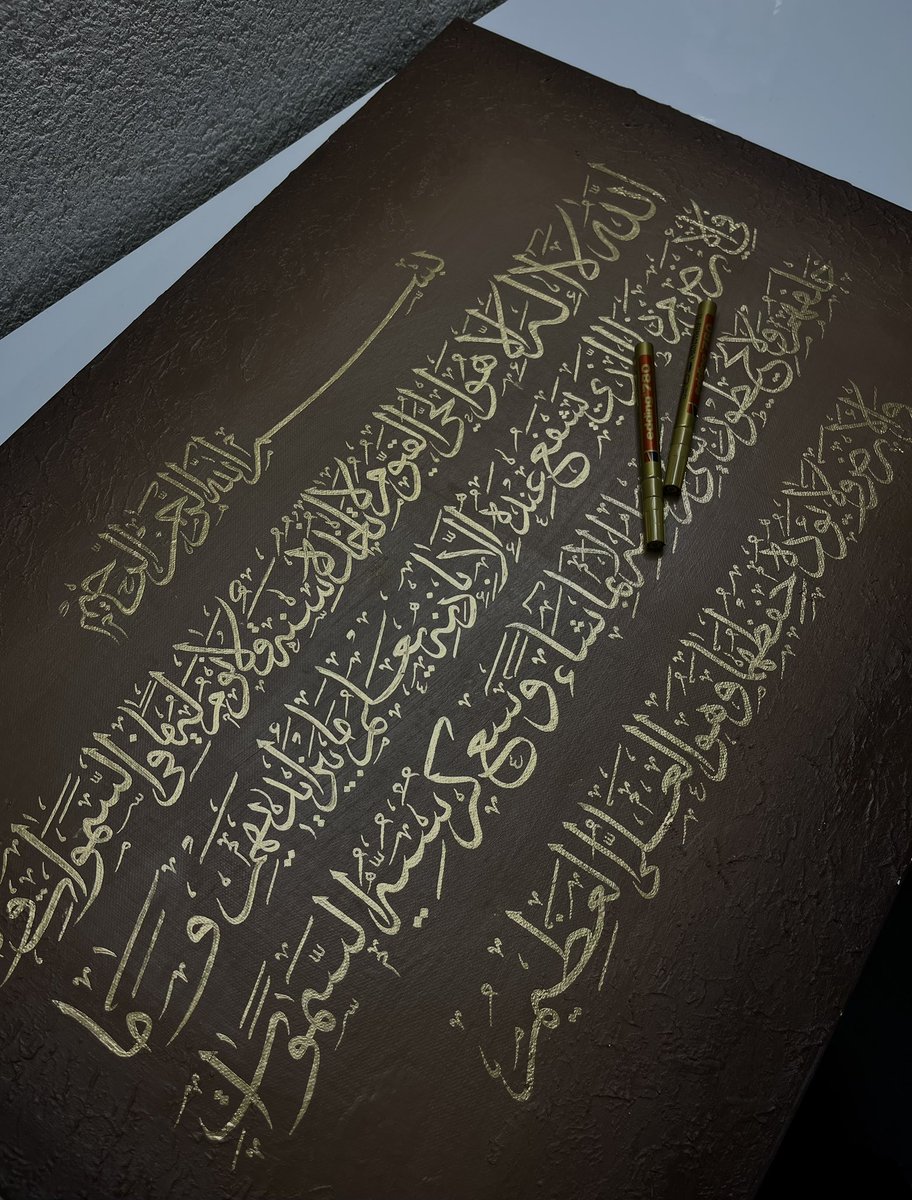 بِسْمِ اللَّهِ الرَّحْمَٰنِ الرَّحِيمِ
اللَّهُ لَا إِلَٰهَ إِلَّا هُوَ الْحَيُّ الْقَيُّومُ لَا تَأْخُذُهُ سِنَةٌ وَلَا نَوْمٌ لَهُ مَا فِي السَّمَوَاتِ
الْأَرْضِ مَنْ ذَا الَّذِي يَشْفَعُ عِنْدَهُ إِلَّا بِإِذْنِهِ يَعْلَمُ مَا بَيْنَ أَيْدِيهِمْ وَمَا
خَلْفَهُمْ وَلَا يُحِيطُونَ بِشَيْءٍ مِنْ عِلْمِهِ إِلَّا بِمَا شَاءَ وَسِعَ كُرْسِيُّهُ السَّمَوَاتِ
وَالْأَرْضَ وَلَا يَئُودُهُ حِفْظُهُمَا وَهُوَ الْعَلِيُّ الْعَظِيمُ
edding 780